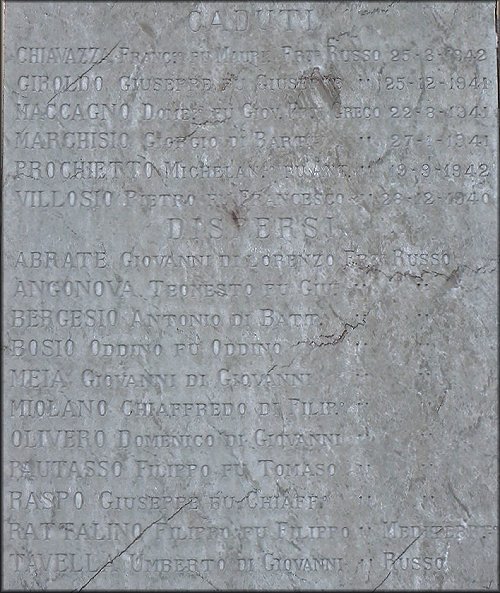 CADUTI
CHIAVAZZA FRANC. FU MAUR. FRTE RUSSO 25-8-1942
GIROLDO GIUSEPPE FU GIUSEPPE " 25-12-1941
MACCAGNO DOMEN. FU GIOV. GRECO 22-3-1941
MARCHISIO GIORGIO DI BART. " 27-1-1941
PROCHIETTO MICHELAN. FU ANT. " 19-9-1942
VILLOSIO PIETRO FU FRANCESCO " 28-12-1940
DISPERSI
ABRATE GIOVANNI DI LORENZO FRTE RUSSO
ANGONOVA TEONESTO FU GIU. " "
BERGESIO ANTONIO DI BATT. " "
BOSIO ODDINO FU ODDINO " "
MEIA GIOVANNI DI GIOVANNI " "
MIOLANO CHIAFFREDO DI FILIP. " "
OLIVERO DOMENICO DI GIOVANNI " "
RAUTASSO FILIPPO FU TOMASO " "
RASPO GIUSEPPE FU CHIAFF. " "
RATTALINO FILIPPO FU FILIPPO "
TAVELLA UMBERTO DI GIOVANNI " RUSSO